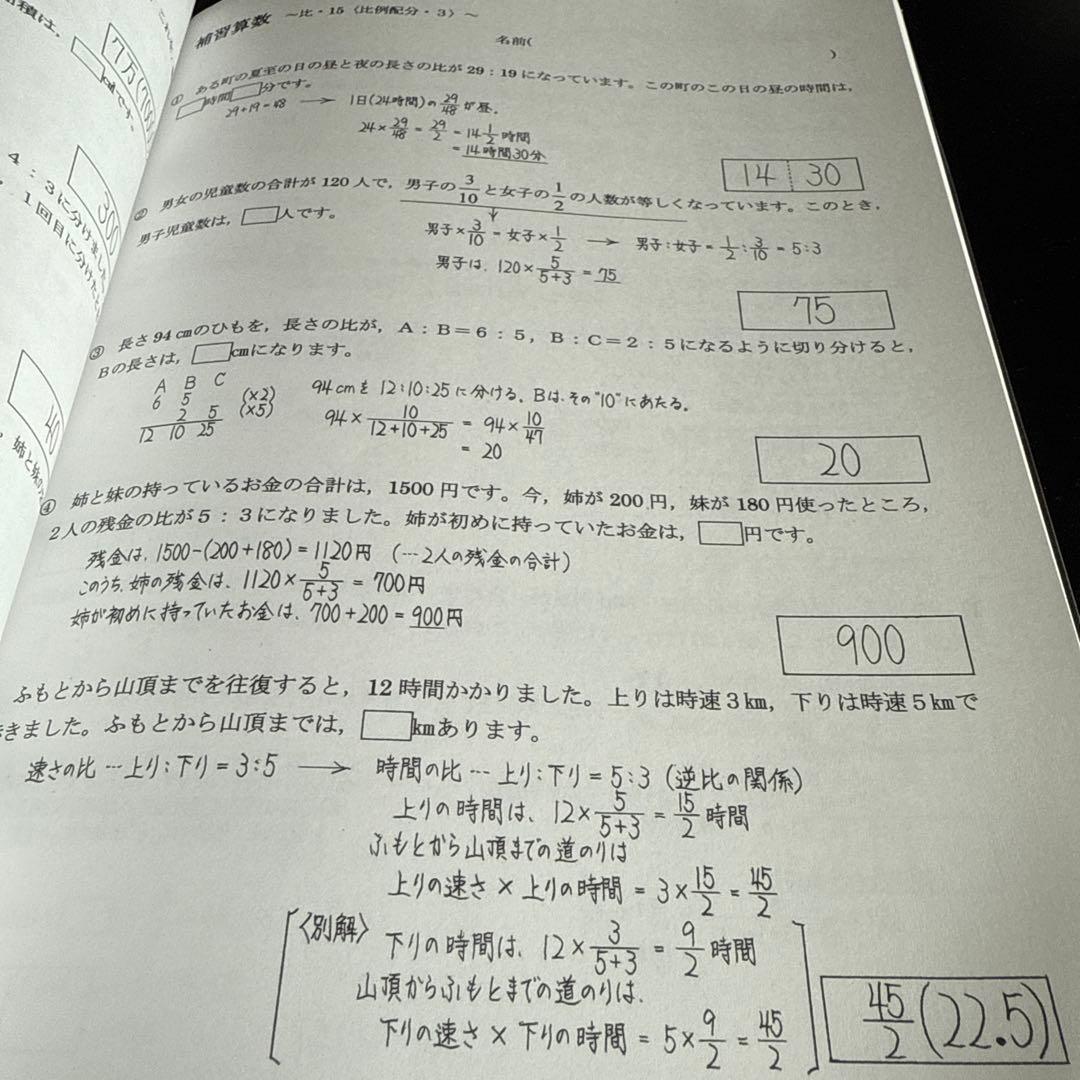 補習算数 ～比・15〈比例配分・3〉～
名前( )
① ある町の夏至の日の昼と夜の長さの比が29：19になっています。この町のこの日の昼の時間は,
□時間□分です。
29+19=48 → 1日(24時間)の 29/48 が昼.
24×29/48 = 29/2 = 14 1/2 時間
= 14時間30分
14 30
② 男女の児童数の合計が120人で, 男子の3/10と女子の1/2の人数が等しくなっています。このとき,
男子児童数は, □人です。
男子×3/10 = 女子×1/2 → 男子:女子 = 1/2 : 3/10 = 5:3
男子は、120×5/(5+3) = 75
75
③ 長さ94cmのひもを, 長さの比が, A：B＝6：5, B：C＝2：5になるように切り分けると,
Bの長さは, □cmになります。
A B C
6 5 (×2)
2 5 (×5)
12 10 25
94cmを 12:10:25に分ける. Bは、その"10"にあたる.
94×10/(12+10+25) = 94×10/47
= 20
20
④ 姉と妹の持っているお金の合計は, 1500円です。今, 姉が200円, 妹が180円使ったところ,
2人の残金の比が5：3になりました。姉が初めに持っていたお金は, □円です。
残金は、1500-(200+180)=1120円 (…2人の残金の合計)
このうち、姉の残金は、1120×5/(5+3) = 700円
姉が初めに持っていたお金は、700+200=900円
900
ふもとから山頂までを往復すると, 12時間かかりました。上りは時速3km, 下りは時速5kmで
きました。ふもとから山頂までは, □kmあります。
速さの比 … 上り:下り = 3:5 → 時間の比 … 上り:下り = 5:3 (逆比の関係)
上りの時間は、12×5/(5+3) = 15/2 時間
ふもとから山頂までの道のりは
上りの速さ × 上りの時間 = 3×15/2 = 45/2
〈別解〉下りの時間は、12×3/(5+3) = 9/2 時間
山頂からふもとまでの道のりは、
下りの速さ × 下りの時間 = 5×9/2 = 45/2
45/2 (22.5)
積は,
□cm²です。
4：3に分けま
300
1回目に分けた
40
姉と妹の